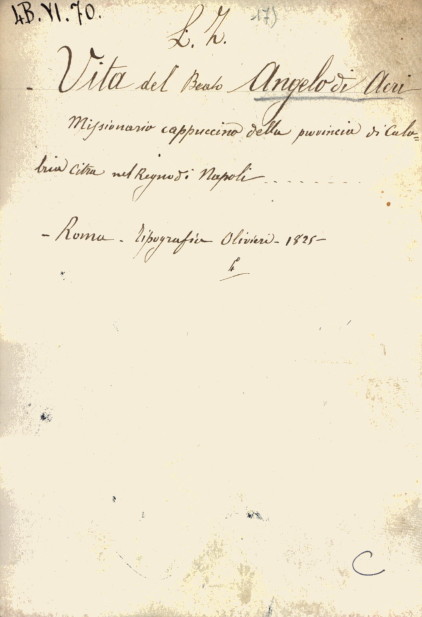 4B.VI.70.
17)
L. Z.
Vita del Beato Angelo di Acri
Missionario cappuccino della provincia di Cala=
bria Citra nel Regno di Napoli
- Roma - Tipografia Olivieri - 1825 -
C